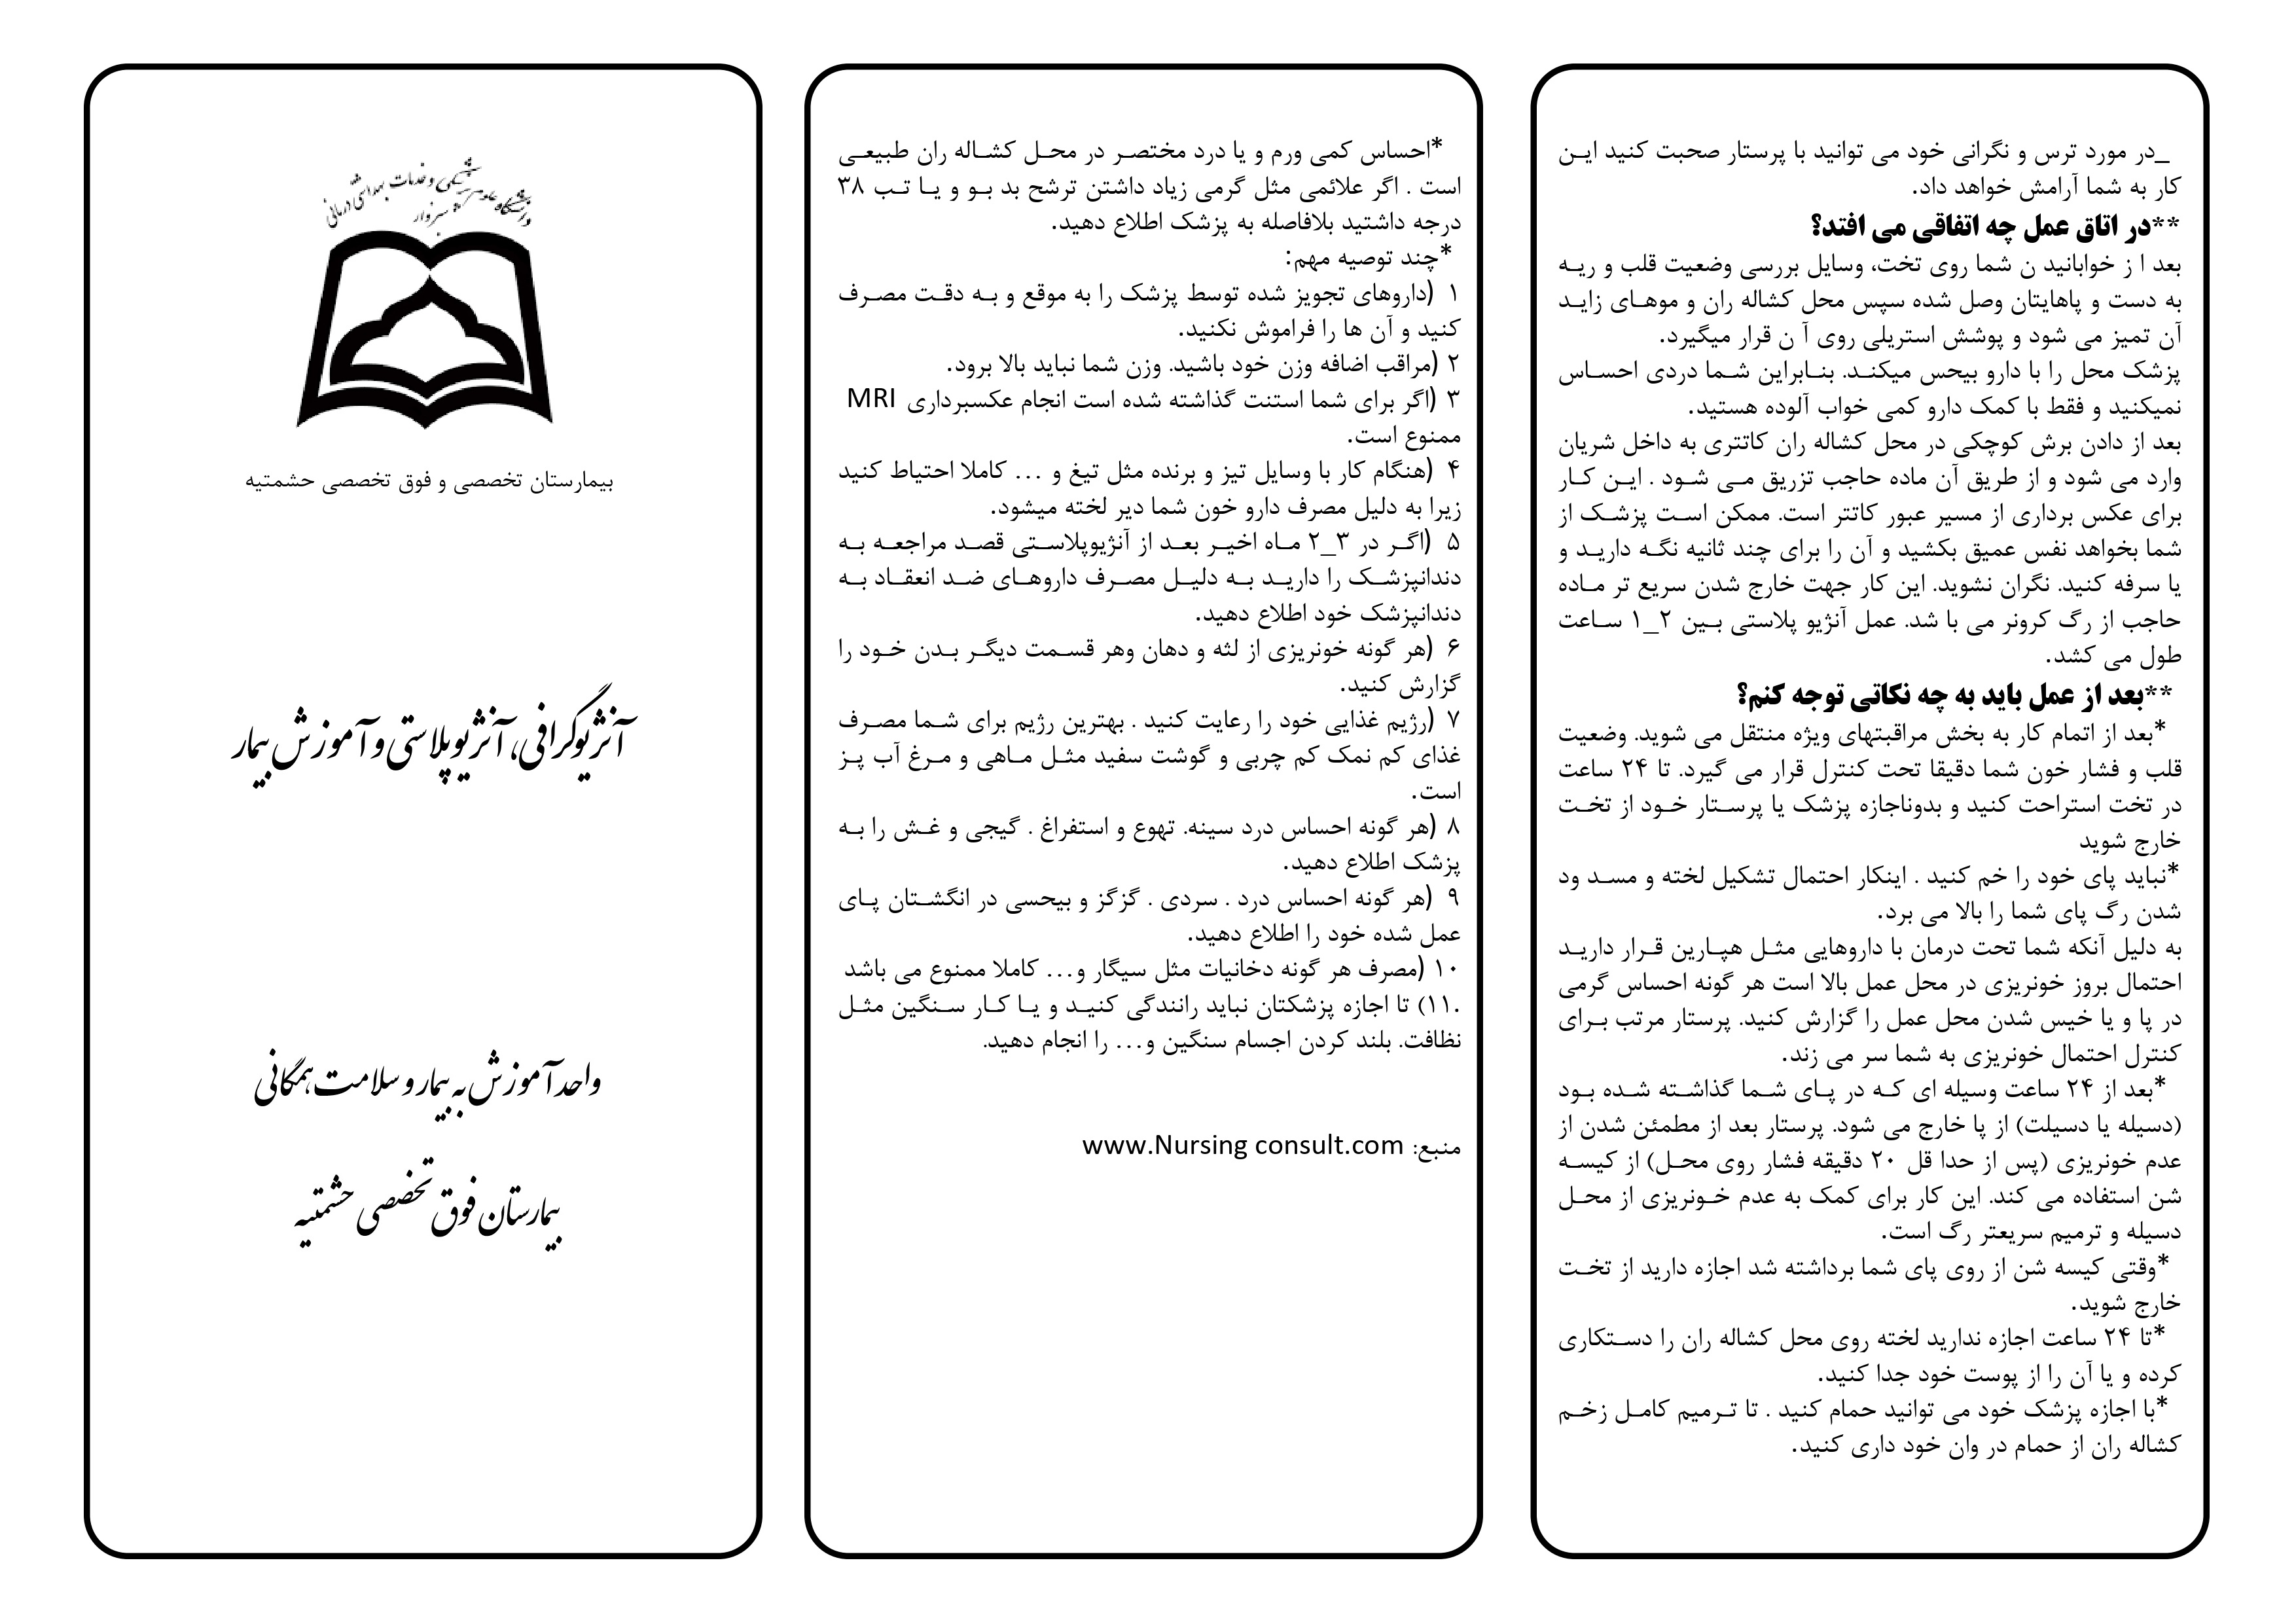 _در مورد ترس و نگرانی خود می توانید با پرستار صحبت کنید ایـن
کار به شما آرامش خواهد داد.
**در اتاق عمل چه اتفاقی می افتد؟
بعد ا ز خوابانید ن شما روی تخت، وسایل بررسی وضعیت قلب و ریـه
به دست و پاهایتان وصل شده سپس محل کشاله ران و موهـای زایـد
آن تمیز می شود و پوشش استریلی روی آ ن قرار میگیرد.
پزشک محل را با دارو بیحس میکنـد. بنـابراین شـما دردی احسـاس
نمیکنید و فقط با کمک دارو کمی خواب آلوده هستید.
بعد از دادن برش کوچکی در محل کشاله ران کاتتری به داخل شریان
وارد می شود و از طریق آن ماده حاجب تزریق مـی شـود . ایـن کـار
برای عکس برداری از مسیر عبور کاتتر است. ممکن اسـت پزشـک از
شما بخواهد نفس عمیق بکشید و آن را برای چند ثانیه نگـه داریـد و
یا سرفه کنید. نگران نشوید. این کار جهت خارج شدن سریع تر مـاده
حاجب از رگ کرونر می با شد. عمل آنژیو پلاستی بـین ۲_۱ سـاعت
طول می کشد.
**بعد از عمل باید به چه نکاتی توجه کنم؟
*بعد از اتمام کار به بخش مراقبتهای ویژه منتقل می شوید. وضعیت
قلب و فشار خون شما دقیقا تحت کنترل قرار می گیرد. تا ۲۴ ساعت
در تخت استراحت کنید و بدوناجازه پزشک یا پرسـتار خـود از تخـت
خارج شوید
*نباید پای خود را خم کنید . اینکار احتمال تشکیل لخته و مسـد ود
شدن رگ پای شما را بالا می برد.
به دلیل آنکه شما تحت درمان با داروهایی مثـل هپـارین قـرار داریـد
احتمال بروز خونریزی در محل عمل بالا است هر گونه احساس گرمی
در پا و یا خیس شدن محل عمل را گزارش کنید. پرستار مرتب بـرای
کنترل احتمال خونریزی به شما سر می زند.
*بعد از ۲۴ ساعت وسیله ای کـه در پـای شـما گذاشـته شـده بـود
(دسیله یا دسیلت) از پا خارج می شود. پرستار بعد از مطمئن شدن از
عدم خونریزی (پس از حدا قل ۲۰ دقیقه فشار روی محـل) از کیسـه
شن استفاده می کند. این کار برای کمک به عدم خـونریزی از محـل
دسیله و ترمیم سریعتر رگ است.
*وقتی کیسه شن از روی پای شما برداشته شد اجازه دارید از تخـت
خارج شوید.
*تا ۲۴ ساعت اجازه ندارید لخته روی محل کشاله ران را دسـتکاری
کرده و یا آن را از پوست خود جدا کنید.
*با اجازه پزشک خود می توانید حمام کنید . تا تـرمیم کامـل زخـم
کشاله ران از حمام در وان خود داری کنید.
*احساس کمی ورم و یا درد مختصـر در محـل کشـاله ران طبیعـی
است . اگر علائمی مثل گرمی زیاد داشتن ترشح بد بـو و یـا تـب ۳۸
درجه داشتید بلافاصله به پزشک اطلاع دهید.
*چند توصیه مهم:
۱ (داروهای تجویز شده توسط پزشک را به موقع و بـه دقـت مصـرف
کنید و آن ها را فراموش نکنید.
۲ (مراقب اضافه وزن خود باشید. وزن شما نباید بالا برود.
۳ (اگر برای شما استنت گذاشته شده است انجام عکسبرداری MRI
ممنوع است.
۴ (هنگام کار با وسایل تیز و برنده مثل تیغ و ... کاملا احتیاط کنید
زیرا به دلیل مصرف دارو خون شما دیر لخته میشود.
۵ (اگـر در ۳_۲ مـاه اخیـر بعـد از آنژیوپلاسـتی قصـد مراجعـه بـه
دندانپزشـک را داریـد بـه دلیـل مصـرف داروهـای ضـد انعقـاد بـه
دندانپزشک خود اطلاع دهید.
۶ (هر گونه خونریزی از لثه و دهان وهر قسـمت دیگـر بـدن خـود را
گزارش کنید.
۷ (رژیم غذایی خود را رعایت کنید . بهترین رژیم برای شـما مصـرف
غذای کم نمک کم چربی و گوشت سفید مثـل مـاهی و مـرغ آب پـز
است.
۸ (هر گونه احساس درد سینه. تهوع و استفراغ . گیجی و غـش را بـه
پزشک اطلاع دهید.
۹ (هر گونه احساس درد . سردی . گزگز و بیحسی در انگشـتان پـای
عمل شده خود را اطلاع دهید.
۱۰ (مصرف هر گونه دخانیات مثل سیگار و... کاملا ممنوع می باشد
.۱۱) تا اجازه پزشکتان نباید رانندگی کنیـد و یـا کـار سـنگین مثـل
نظافت. بلند کردن اجسام سنگین و... را انجام دهید.
منبع: www.Nursing consult.com
دانشگاه علوم پزشکی و خدمات بهداشتی درمانی
سبزوار
بیمارستان تخصصی و فوق تخصصی حشمتیه
آنژیوگرافی، آنژیوپلاستی و آموزش بیمار
واحد آموزش به بیمار و سلامت همگانی
بیمارستان فوق تخصصی حشمتیه